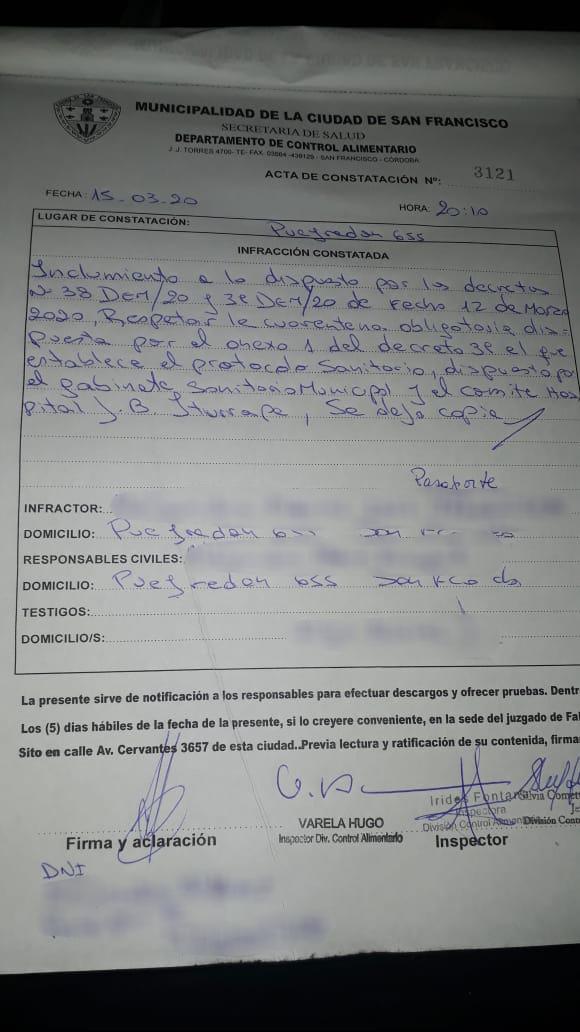 MUNICIPALIDAD DE LA CIUDAD DE SAN FRANCISCO
SECRETARIA DE SALUD
DEPARTAMENTO DE CONTROL ALIMENTARIO
J.J. TORRES 4700- TE- FAX. 03564 -439129 - SAN FRANCISCO - CÓRDOBA
ACTA DE CONSTATACIÓN Nº: 3121
FECHA: 15-03-20 HORA: 20:10
LUGAR DE CONSTATACIÓN: Pueyrredon 655
INFRACCIÓN CONSTATADA
Inclumiento a lo dispuesto por los decretos
Nº 38 DEM/20 y 39 DEM/20 de Fecha 12 de Marzo
2020, Respetar la cuarentena obligatoria dis-
puesta por el anexo 1 del decreto 39 el que
establece el protocolo Sanitario, dispuesto por
el gabinete Sanitario Municipal y el comite Hos
pital J.B Iturraspe, Se deja copia
Pasaporte
INFRACTOR:
DOMICILIO: Pueyrredon 655 San
RESPONSABLES CIVILES:
DOMICILIO: Pueyrredon 655 San Fco
TESTIGOS:
DOMICILIO/S:
La presente sirve de notificación a los responsables para efectuar descargos y ofrecer pruebas. Dentr
Los (5) dias hábiles de la fecha de la presente, si lo creyere conveniente, en la sede del juzgado de Fal
Sito en calle Av. Cervantes 3657 de esta ciudad..Previa lectura y ratificación de su contenida, firma
Irides Fontan Silvia Comet
Inspectora
VARELA HUGO División Control División Con
Firma y aclaración Inspector Div. Control Alimentario Inspector
DNI